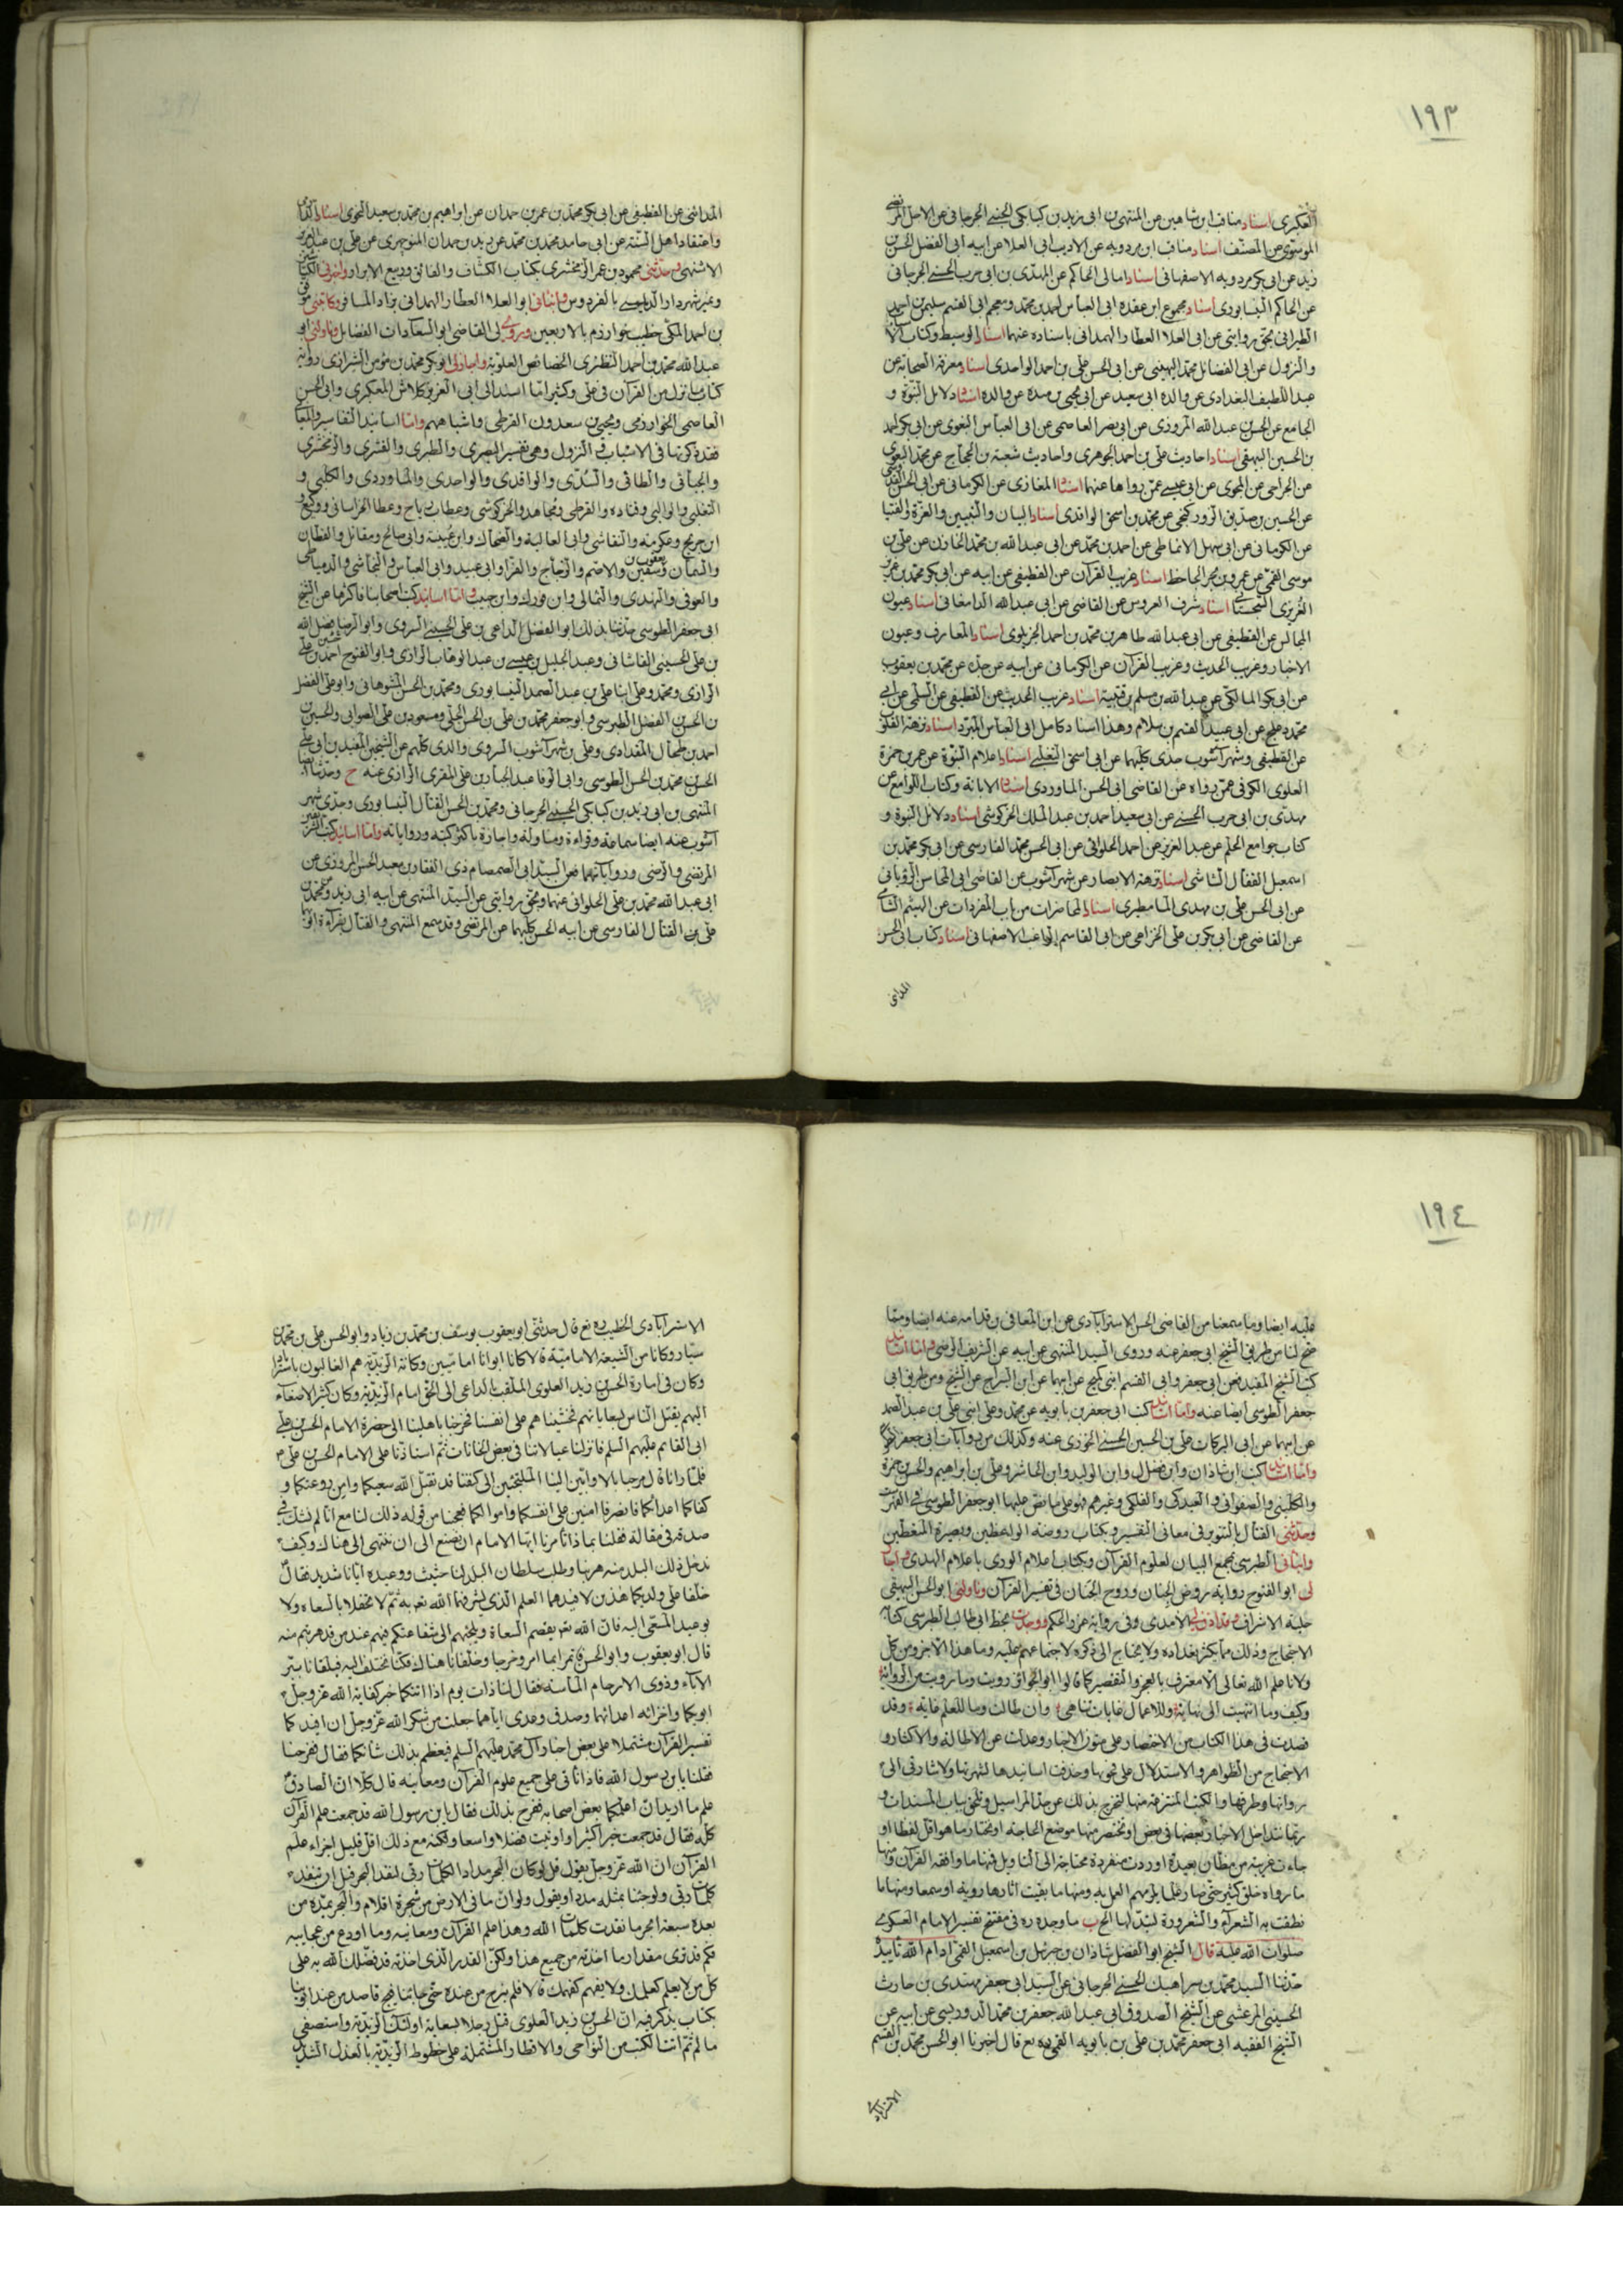 ١٩٣
العكبرى اسناد مناقب ابن شاهين عن المنتهى بن ابى زيد بن كيابكى الحسنى الجرجانى عن الاجل المرتضى
الموسوى عن المصنف اسناد مناقب ابن مردويه عن الاديب ابى العلا عن ابيه ابى الفضل الحسن
زيد عن ابى بكر مردويه الاصفهانى اسناد امالى الحاكم عن المهدى بن ابى حرب الحسنى الجرجانى
عن الحاكم النيسابورى اسناد مجموع ابن عقدة ابى العباس احمد بن محمد ومعجم ابى القسم سليمن بن احمد
الطبرانى بحق روايتى عن ابى العلا العطار الهمدانى باسناده عنهما اسناد الوسيط وكتاب
والنزول عن ابى الفضائل محمد البهينى عن ابى الحسن على بن احمد الواحدى اسناد معرفة الصحابة عن
عبد اللطيف البغدادى عن والده ابى سعيد عن ابى يحيى بن مندة عن والده اسناد دلائل النبوة و
الجامع عن الحسين بن عبد الله المروزى عن ابى نصر العاصمى عن ابى العباس البغوى عن ابى بكر احمد
بن الحسين البيهقى اسناد احاديث على بن احمد الجوهرى واحاديث شعبة بن الحجاج عن محمد البغوى
عن الجراحى عن المحبوبى عن ابى عيسى عمن رواها عنهما اسناد المغازى عن الكرمانى عن ابى الحسن
عن الحسين بن صديق الوزورنجى عن محمد بن اسحق الواقدى اسناد البيان والتبيين والغرة والفتيا
عن الكرمانى عن ابى سهل الانماطى عن احمد بن محمد عن ابى عبد الله بن محمد الخازن عن على بن
موسى القمى عن عمرو بن بحر الجاحظ اسناد غريب القرآن عن القطيفى عن ابيه عن ابى بكر محمد بن عزيز
العزيزى السجستانى اسناد شرف العروس عن القاضى عن ابى عبد الله الدامغانى اسناد عيون
المجالس عن القطيفى عن ابى عبد الله طاهر بن محمد بن احمد الخريلوى اسناد المعارف وعيون
الاخبار وغريب الحديث وغريب القرآن عن الكرمانى عن ابيه عن جده عن محمد بن يعقوب
عن ابى بكر المالكى عن عبد الله بن مسلم بن قتيبة اسناد غريب الحديث عن القطيفى عن السلمى عن ابى
محمد دعلج عن ابى عبيد القسم بن سلام وهذا اسناد كامل ابى العباس المبرد اسناد نزهة القلوب
عن القطيفى وشهرآشوب جدى كليهما عن ابى اسحق الثعلبى اسناد اعلام النبوة عن عمر بن حمزة
العلوى الكوفى عمن رواه عن القاضى ابى الحسن الماوردى اسناد الابانة وكتاب اللوامع عن
مهدى بن ابى حرب الحسنى عن ابى سعيد احمد بن عبد الملك الخركوشى اسناد دلائل النبوة و
كتاب جوامع الحلم عن عبد العزيز عن احمد الحلوانى عن ابى الحسن محمد الفارسى عن ابى بكر محمد بن
اسمعيل القفال الشاشى اسناد نزهة الابصار عن شهرآشوب عن القاضى ابى المحاسن الرويانى
عن ابى الحسن على بن مهدى المامطيرى اسناد المحاضرات من باب المفردات عن الهيثم الشاشى
عن القاضى عن ابى بكر بن على الخزاعى عن ابى القاسم الراغب الاصفهانى اسناد كتاب ابى الحسن
المدائنى
المدائنى عن القطيفى عن ابى بكر محمد بن عمر بن حمدان عن ابراهيم بن محمد بن سعيد النحوى اسناد
واعتقاد اهل السنة عن ابى حامد محمد بن محمد عن زيد بن حمدان المنوچهرى عن على بن عبد العزيز
الاشنهى وحدثنى محمود بن عمر الزمخشرى بكتاب الكشاف والفائق وربيع الابرار واخبرنى الكيا
وغير شهردار الديلمى بالفردوس وانبائى ابو العلا العطار الهمدانى بزاد المسافر وكاتبنى موفق
بن احمد المكى خطيب خوارزم بالاربعين وروى لى القاضى ابو السعادات الفضائل وناولنى ابو
عبد الله محمد بن احمد النطنزى الخصائص العلوية واجاز لى ابو بكر محمد بن مؤمن الشيرازى رواية
كتاب ما نزل من القرآن فى على وكثيرا ما اسند الى ابى العز بن كلاش العكبرى وابى الحسن
العاصمى الخوارزمى ويحيى بن سعدون القرطبى واشباههم واما اسانيد التفاسير والمعانى
فقد ذكرتها فى الاسباب والنزول وهى تفسير البصرى والطبرى والقشرى والزمخشرى
والجبائى والطائى والسدى والواقدى والواحدى والماوردى والكلبى و
الثعلبى والوالبى وقتادة والقرطبى ومجاهد والخركوشى وعطا بن رباح وعطا الخراسانى ووكيع و
ابن جريج وعكرمة والنقاشى وابى العالية والضحاك وابن عيينة وابى صالح ومقاتل والقطان
والسمان ويعقوب بن سفين والاصم والزجاج والفرا وابى عبيد وابى العباس والنجاشى والدمياطى
والعوفى والنهدى والثمالى وابن فورك وابن حبيب واما اسانيد كتب اصحابنا فاكثرها عن الشيخ
ابى جعفر الطوسى حدثنا بذلك ابو الفضل الداعى بن على الحسينى السروى وابو الرضا فضل الله
بن على الحسينى القاشانى وعبد الجليل بن عيسى بن عبد الوهاب الرازى وابو الفتوح احمد بن على
الرازى ومحمد وعلى ابنا على بن عبد الصمد النيسابورى ومحمد بن الحسن الشوهانى وابو على الفضل
بن الحسن بن الفضل الطبرسى وابو جعفر محمد بن على بن الحسن الحلبى ومسعود بن على الصوابى والحسين
احمد بن طحال المقدادى وعلى بن شهرآشوب السروى والدى كلهم عن الشيخين المفيدين ابى على
الحسن بن محمد بن الحسن الطوسى وابى الوفا عبد الجبار بن على المقرى الرازى عنه ح وحدثنا ايضا
المنتهى بن ابى زيد بن كيابكى الحسينى الجرجانى ومحمد بن الحسن الفتال النيسابورى وجدى شهر
آشوب عنه ايضا سماعة وقراءة ومناولة واجازة باكثر كتبه ورواياته واما اسانيد كتب الشريفين
المرتضى والرضى ورواياتهما فعن السيد ابى الصمصام ذى الفقار بن معبد الحسنى المروزى عن
ابى عبد الله محمد بن على الحلوانى عنهما وبحق روايتى عن السيد المنتهى عن ابيه ابى زيد وعن محمد بن
على بن الفتال الفارسى عن ابيه الحسن كليهما عن المرتضى وقد سمع المنتهى والفتال بقرآءة ابويهما
١٩٤
عليه ايضا وما سمعنا من القاضى الحسن الاسترآبادى عن ابن المعافى بن قدامه عنه ايضا ومما
صح لنا من طريق الشيخ ابى جعفر عنه وروى السيد المنتهى عن ابيه عن الشريف الرضى واما اسانيد
كتب الشيخ المفيد فعن ابى جعفر وابى القسم ابنى كميح عن ابيهما عن ابن البراج عن الشيخ ومن طريق ابى
جعفر الطوسى ايضا عنه واما اسانيد كتب ابى جعفر بن بابويه عن محمد وعلى ابنى على بن عبد الصمد
عن ابيهما عن ابى البركات على بن الحسين الحسينى الخوزى عنه وكذلك من روايات ابى جعفر الطوسى
واما اسانيد كتب ابن شاذان وابن فضال وابن الوليد وابن الحاشر وعلى بن ابراهيم والحسن بن حمزة
والكلينى والصفوانى والعبدكى والفلكى وغيرهم فهو على ما نص عليها ابو جعفر الطوسى فى الفهرست
وحدثنى الفتال بالتنوير فى معانى التفسير وبكتاب روضة الواعظين وبصيرة المتعظين
وانبائى الطبرسى بمجمع البيان لعلوم القرآن وبكتاب اعلام الورى باعلام الهدى واجاز
لى ابو الفتوح رواية روض الجنان وروح الجنان فى تفسير القرآن وناولنى ابو الحسن البيهقى
حلية الاشراف وقد اذن لى الآمدى فى رواية غرر الحكم ووجدت بخط ابى طالب الطبرسى كتابه
الاحتجاج وذلك مما يكثر تعداده ولا يحتاج الى ذكره لاجتماعهم عليه وما هذا الا جزو من كل
ولا انا علم الله تعالى الا معترف بالعجز والتقصير كما قال ابو الجوائز رويت وما رويت من الرواية
وكيف وما انتهيت الى نهاية وللاعمال غايات تناهى وان طالت وما للعلم غاية وقد
قصدت فى هذا الكتاب من الاختصار على متون الاخبار وعدلت عن الاطالة والاكثار و
الاحتجاج من الظواهر والاستدلال على فحويها وحذفت اسانيدها لشهرتها ولاشارتى الى
رواتها وطرقها والكتب المنتزعة منها لتخرج بذلك عن حد المراسيل وتلحق بباب المسندات و
ربما تتداخل الاخبار بعضها فى بعض او نختصر منها موضع الحاجة او نختار ما هو اقل لفظا او
جاءت غريبة من مظان بعيدة او وردت منفردة محتاجة الى التاويل فمنها ما وافقه القرآن ومنها
ما رواه خلق كثير حتى صار علما ضروريا يلزمهم العمل به ومنها ما بقيت آثارها روية او سمعا ومنها ما
نطقت به الشعرآء والشعرورة لتبذلها الخ ب ما وجده ره فى مفتتح تفسير الامام العسكرى
صلوات الله عليه قال الشيخ ابو الفضل شاذان بن جبرئيل بن اسمعيل القمى ادام الله تاييده
حدثنا السيد محمد بن سراهنك الحسنى الجرجانى عن السيد ابى جعفر مهتدى بن حارث
الحسينى المرعشى عن الشيخ الصدوق ابى عبد الله جعفر بن محمد الدوريستى عن ابيه عن
الشيخ الفقيه ابى جعفر محمد بن على بن بابويه القمى ره قال اخبرنا ابو الحسن محمد بن القسم
الاسترآبادى
الاسترآبادى الخطيب ره قال حدثنى ابو يعقوب يوسف بن محمد بن زياد وابو الحسن على بن محمد بن
سيار وكانا من الشيعة الامامية قالا كانا ابوانا اماميين وكانة الزيدية هم الغالبون باسترآباد
وكان فى امارة الحسن بن زيد العلوى الملقب بالداعى الى الحق امام الزيدية وكان كثير الاصغآء
اليهم يقتل الناس بسعاياتهم فخشيناهم على انفسنا فخرجنا باهلينا الى حضرة الامام الحسن بن على
ابى القائم عليهم السلم فانزلنا عيالاتنا فى بعض الخانات ثم استاذنا على الامام الحسن بن على ع
فلما رانا قال مرحبا بالاوابين الينا الملتجئين الى كنفنا قد تقبل الله سعيكما وآمن روعتكما و
كفاكما اعداءكما فانصرفا امنين على انفسكما واموالكما فعجبنا من قوله ذلك لنا مع انا لم نشك فى
صدقه فى مقاله فقلنا بماذا تامرنا ايها الامام ان نصنع الى ان ننتهى الى هناك وكيف
ندخل ذلك البلد ومنه هربنا وطلب سلطان البلد لنا حثيث ووعيده ايانا شديد فقال ع
خلفا على ولديكما هذين لافيدهما العلم الذى يشرفهما الله تعالى به ثم لا تحفلا بالسعاة ولا
بوعيد المسعى اليه فان الله تعالى يقصم السعاة ويلجئهم الى شفاعتكم فيهم عند من قد هربتم منه
قال ابو يعقوب وابو الحسن فاتمرا بما امر وخرجا وخلفانا هناك فكنا نختلف اليه فيلقانا ببر
الآباء وذوى الارحام الماسة فقال لنا ذات يوم اذا اتيكما خبر كفاية الله عز وجل
ابويكما واخزائه اعدائهما وصدق وعدى اياهما جعلت من شكر الله عز وجل ان افيدكما
تفسير القرآن مشتملا على بعض اخبار آل محمد عليهم السلم فيعظم بذلك شانكما فقال ففرحنا
فقلنا يا بن رسول الله فاذا ناتى على جميع علوم القرآن ومعانيه قال كلا ان الصادق ع
علم ما اريد ان اعلمكما بعض اصحابه ففرح بذلك فقال يا بن رسول الله قد جمعت علم القرآن
كله فقال قد جمعت خيرا كثيرا واوتيت فضلا واسعا ولكنه مع ذلك اقل قليل اجزاء علم
القرآن ان الله عز وجل يقول قل لو كان البحر مدادا لكلمات ربى لنفد البحر قبل ان تنفد
كلمات ربى ولو جئنا بمثله مددا ويقول ولو ان ما فى الارض من شجرة اقلام والبحر يمده من
بعده سبعة ابحر ما نفدت كلمات الله وهذا علم القرآن ومعانيه وما اودع من عجايبه
فكم قد ترى مقدار ما اخذته من جميع هذا ولكن القدر الذى اخذته قد فضلك الله به على
كل من لا يعلم كعلمك ولا يفهم كفهمك قالا فلم نبرح من عنده حتى جائنا فيج قاصد من عند ابوينا
بكتاب يذكر فيه ان الحسن بن زيد العلوى قتل رجلا بسعاية اولئك الزيدية واستصفى
ماله ثم اتت الكتب من النواحى والاقطار المشتملة على خطوط الزيدية بالعذل الشديد